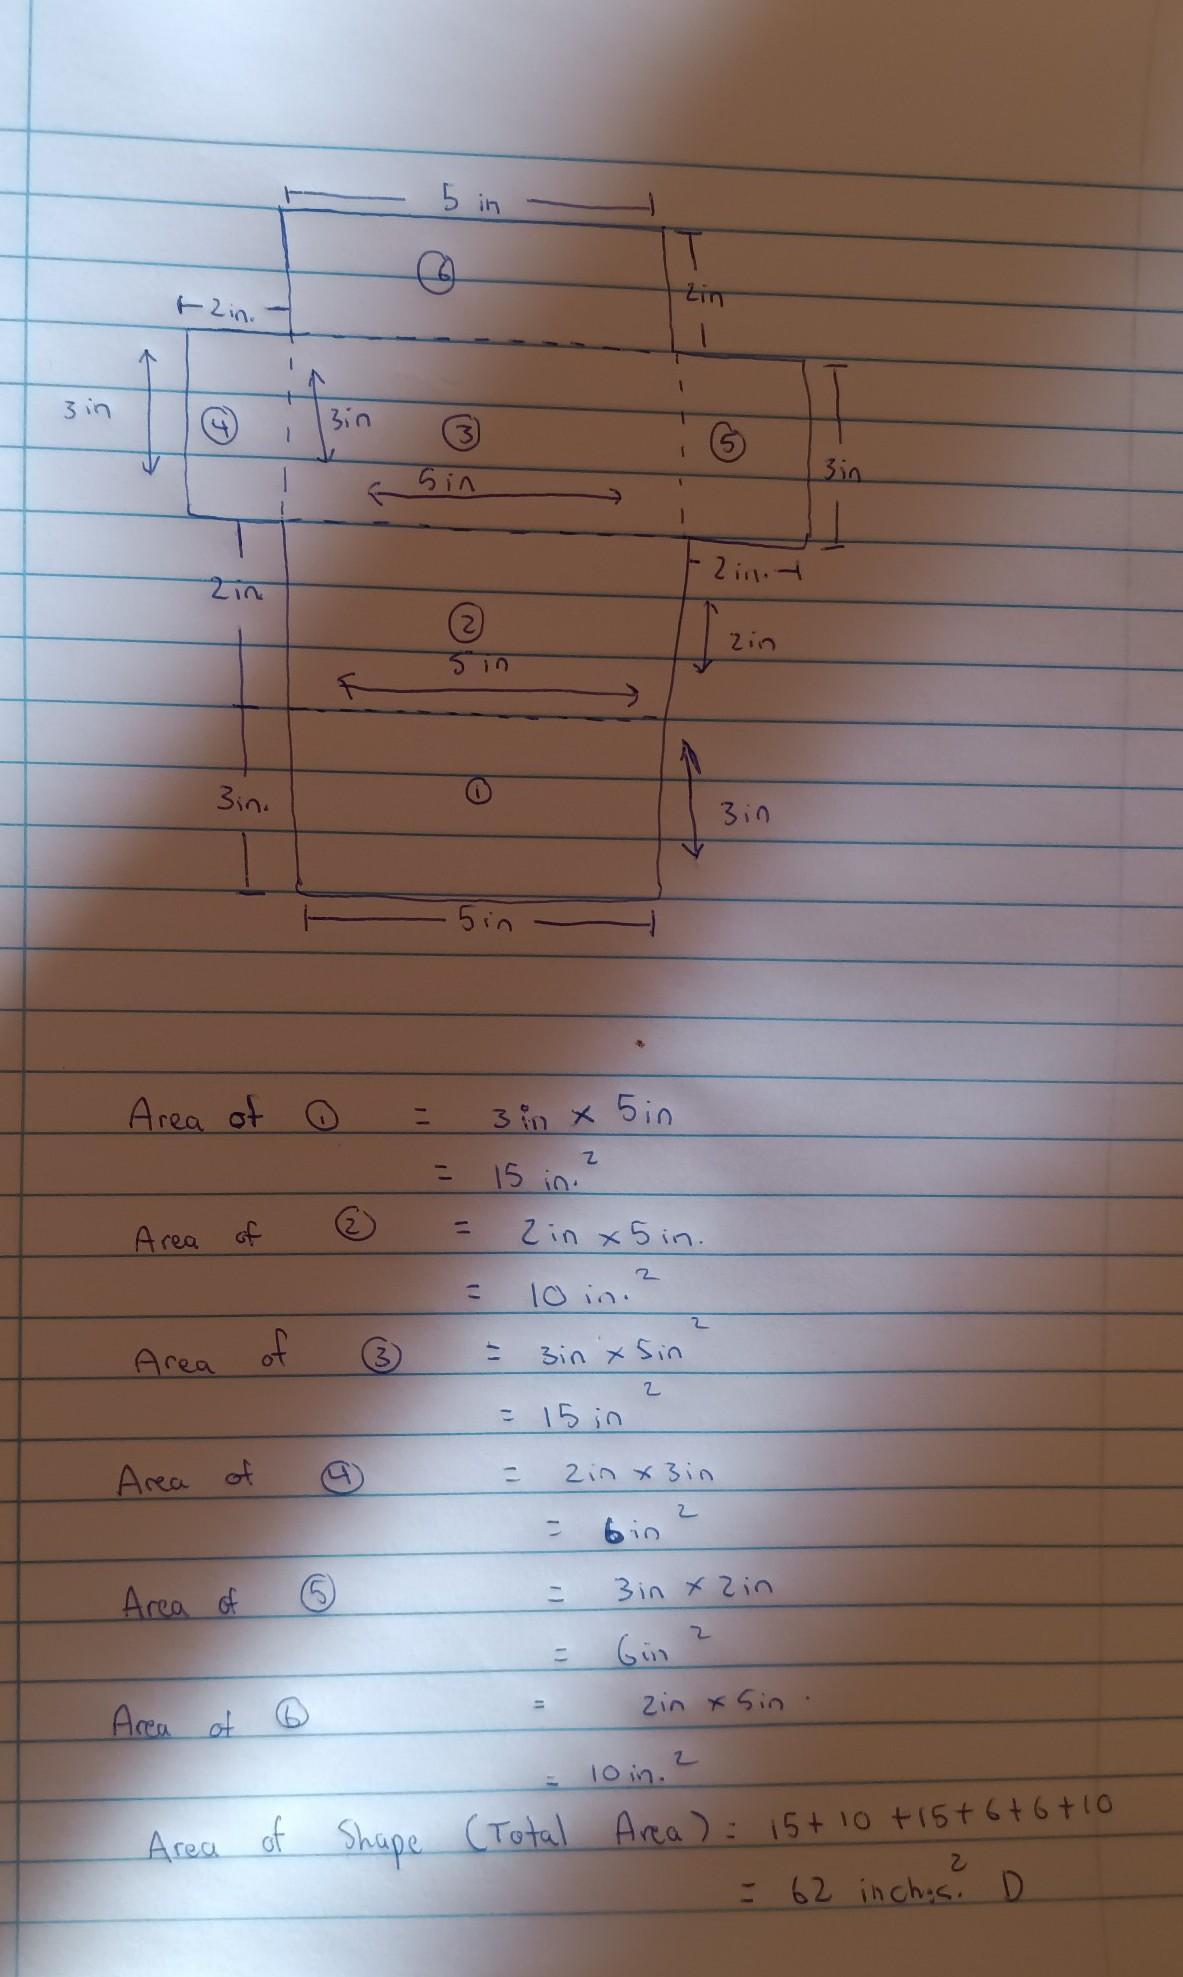 5 in
⑥
2in
2in.
3in
④
3in
③
⑤
5in
3in
2in
2in.
②
5 in
2in
①
3in.
3in
5in
Area of ① = 3in × 5in
= 15 in.²
Area of ② = 2in × 5in.
= 10 in.²
Area of ③ = 3in × 5in²
= 15in²
Area of ④ = 2in × 3in
= 6in²
Area of ⑤ = 3in × 2in
= 6in²
Area of ⑥ = 2in × 5in.
= 10in.²
Area of Shape (Total Area) = 15+10+15+6+6+10
= 62 inches.² D